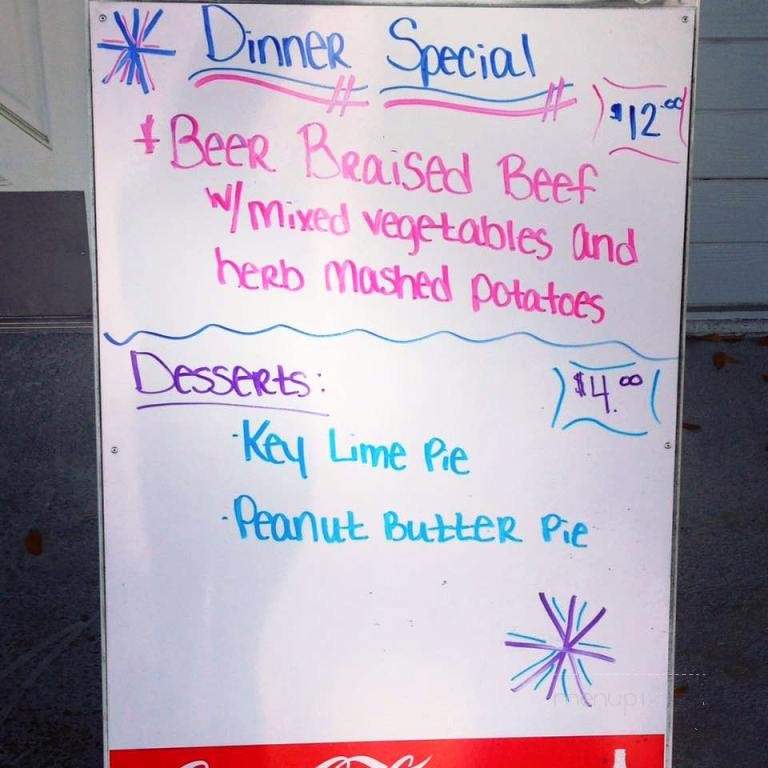 Dinner Special
$12.00
Beer Braised Beef
w/ mixed vegetables and
herb mashed potatoes
Desserts:
$4.00
· Key Lime Pie
· Peanut Butter Pie